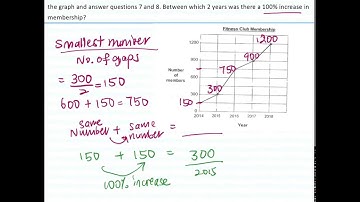 the graph and answer questions 7 and 8. Between which 2 years was there a 100% increase in
membership?
Smallest number
No. of gaps
= 300/2 = 150
600 + 150 = 750
same Number + same number =
150 + 150 = 300
2015
100% increase
Fitness Club Membership
Number
of
members
1200
900
600
300
0
150
300
750
900
1200
2014 2015 2016 2017 2018
Year